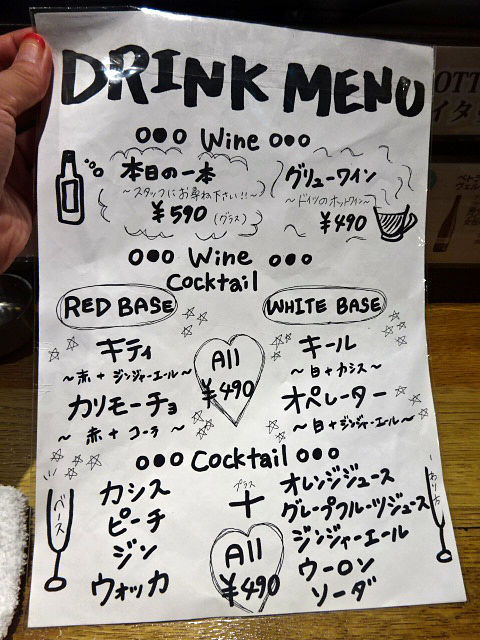 DRINK MENU
Wine
本日の一本
～スタッフにお尋ね下さい!!～
¥590 (グラス)
グリューワイン
～ドイツのホットワイン～
¥490
Wine
Cocktail
RED BASE
WHITE BASE
キティ
～赤+ジンジャーエール～
カリモーチョ
～赤+コーラ～
All
¥490
キール
～白+カシス～
オペレーター
～白+ジンジャーエール～
Cocktail
ベース
カシス
ピーチ
ジン
ウォッカ
プラス
+
All
¥490
オレンジジュース
グレープフルーツジュース
ジンジャーエール
ウーロン
ソーダ
わり方
OTT
イタ